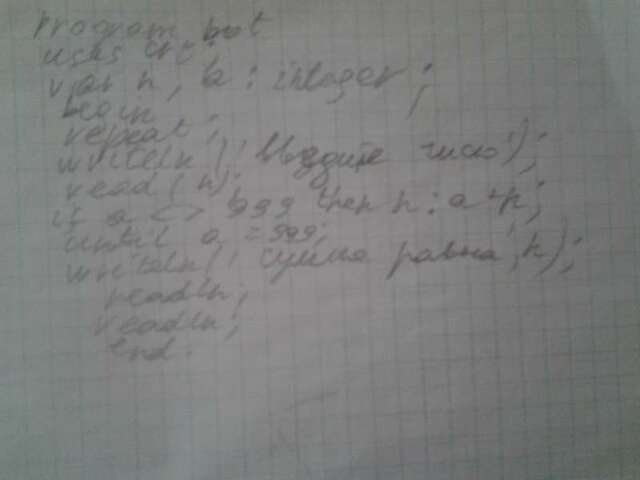 program bot
uses crt;
var n, a : integer;
begin
repeat;
writeln (' Введите число');
read (n);
if a <> 999 then n : a + n;
until a = 999;
writeln (' сумма равна, n);
readln;
readln;
end.